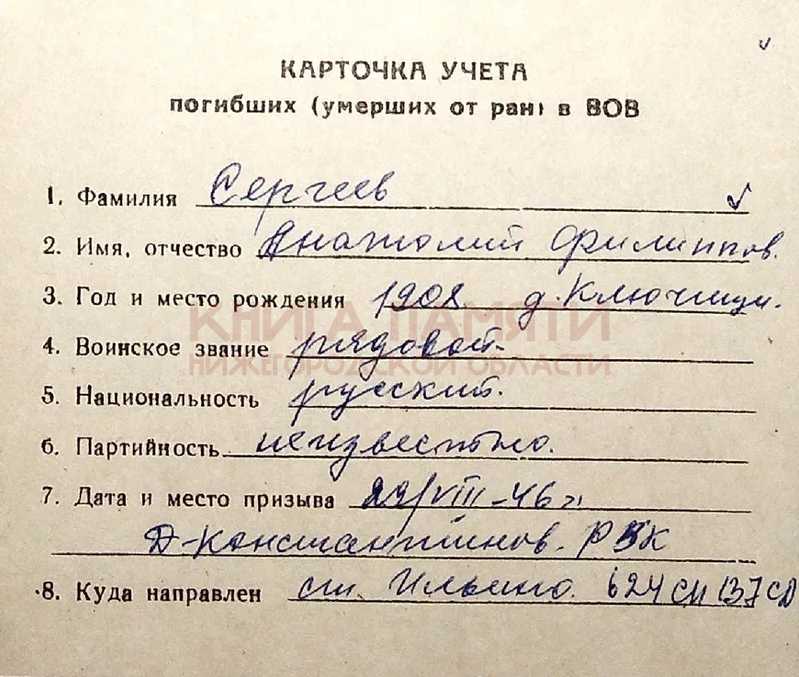 КАРТОЧКА УЧЕТА
погибших (умерших от ран) в ВОВ
1. Фамилия Сергеев
2. Имя, отчество Анатолий Филиппов.
3. Год и место рождения 1908 д. Ключищи.
КНИГА ПАМЯТИ
4. Воинское звание рядовой
НИЖЕГОРОДСКОЙ ОБЛАСТИ
5. Национальность русский.
6. Партийность неизвестно.
7. Дата и место призыва /VIII-46г
Д-Константинов. РВК
8. Куда направлен ст. Ильино. 624 СП 137 СД